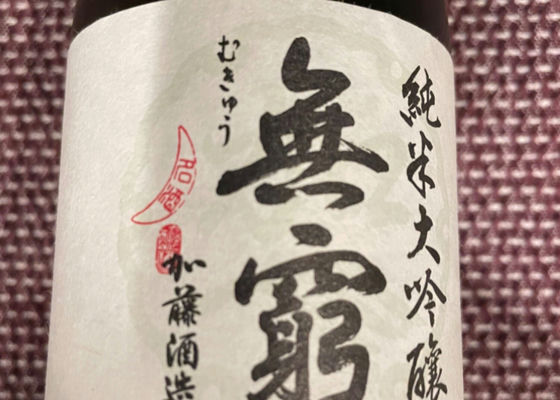 純米大吟醸
無窮
むきゅう
名酒
加藤酒造